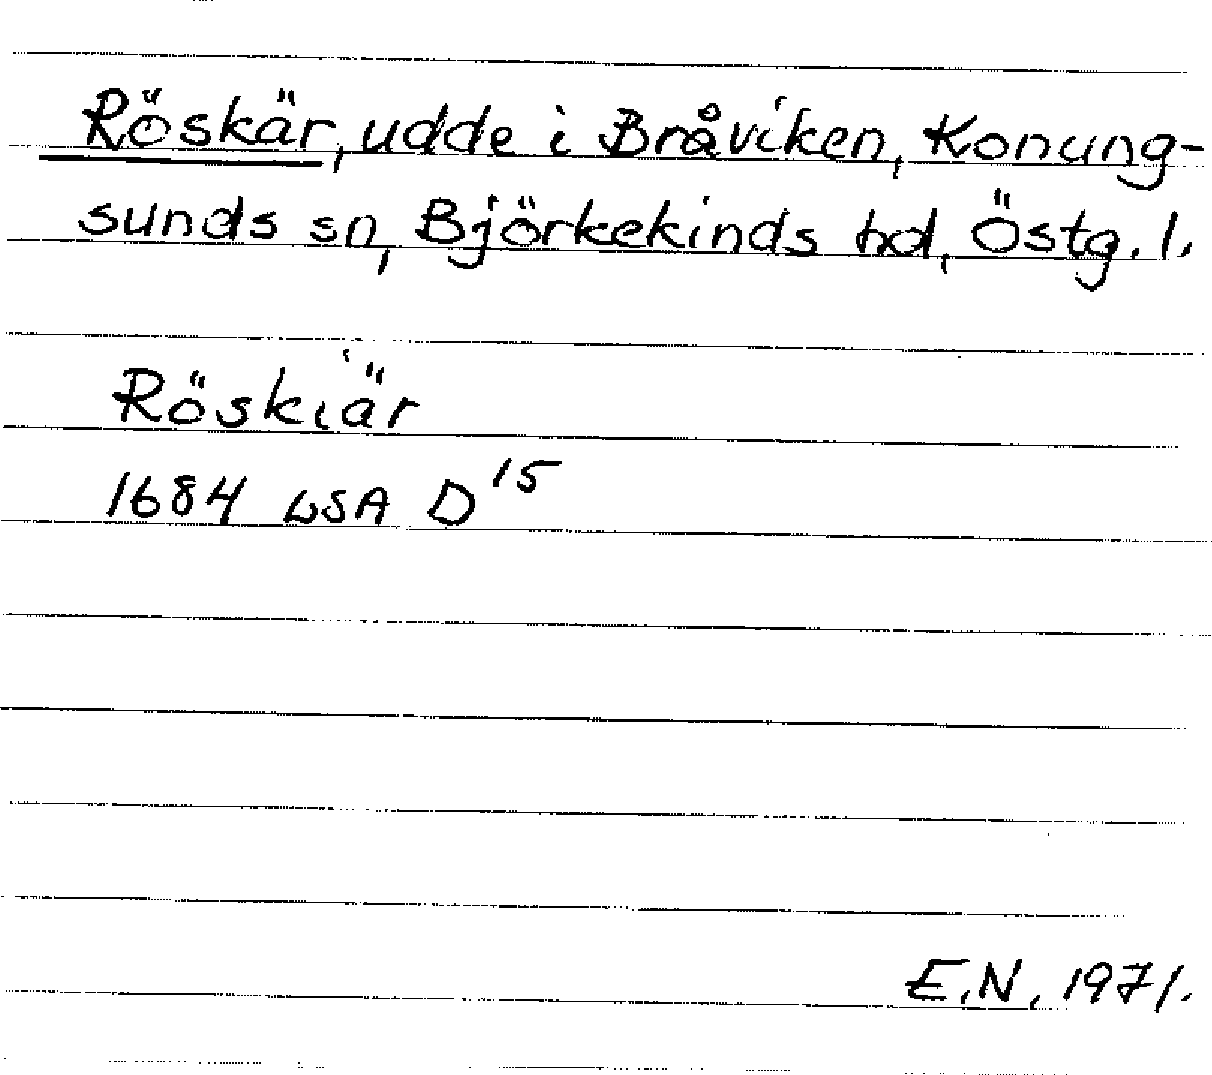 Röskär, udde i Bråviken, Konung-
sunds sn, Björkekinds hd, Östg. l.
Röskiär
1684 LSA D 15
E.N. 1971.